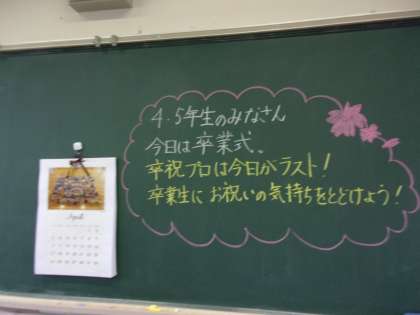 4・5年生のみなさん
今日は卒業式。
卒祝プロは今日がラスト!
卒業生にお祝いの気持ちをとどけよう!
April